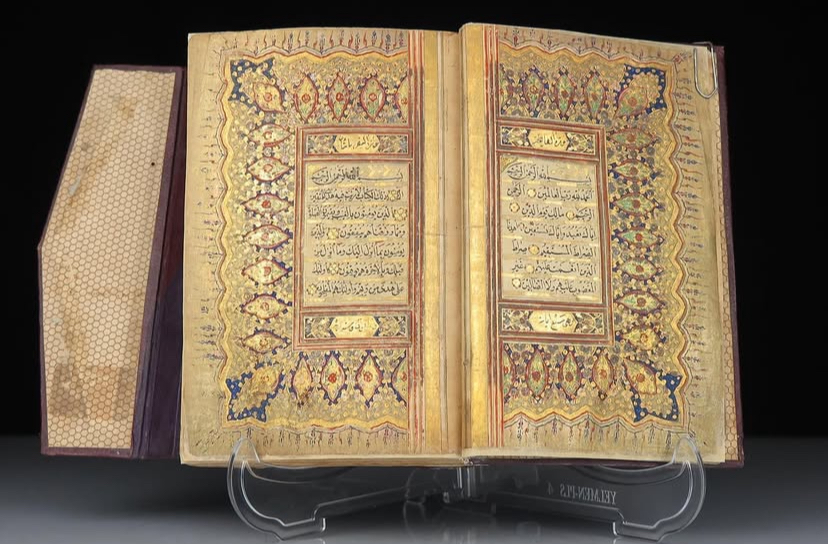 سورة الفاتحة
بسم الله الرحمن الرحيم
الحمد لله رب العالمين الرحمن
الرحيم مالك يوم الدين
اياك نعبد واياك نستعين اهدنا
الصراط المستقيم صراط
الذين انعمت عليهم غير
المغضوب عليهم ولا الضالين
وهي سبع ايات
سورة البقرة
بسم الله الرحمن الرحيم
الم ذلك الكتاب لا ريب فيه هدى للمتقين
الذين يؤمنون بالغيب ويقيمون الصلوة
ومما رزقناهم ينفقون والذين
يؤمنون بما انزل اليك وما انزل
من قبلك وبالاخرة هم يوقنون اولئك
على هدى من ربهم واولئك هم المفلحون
YELMEN-PLS